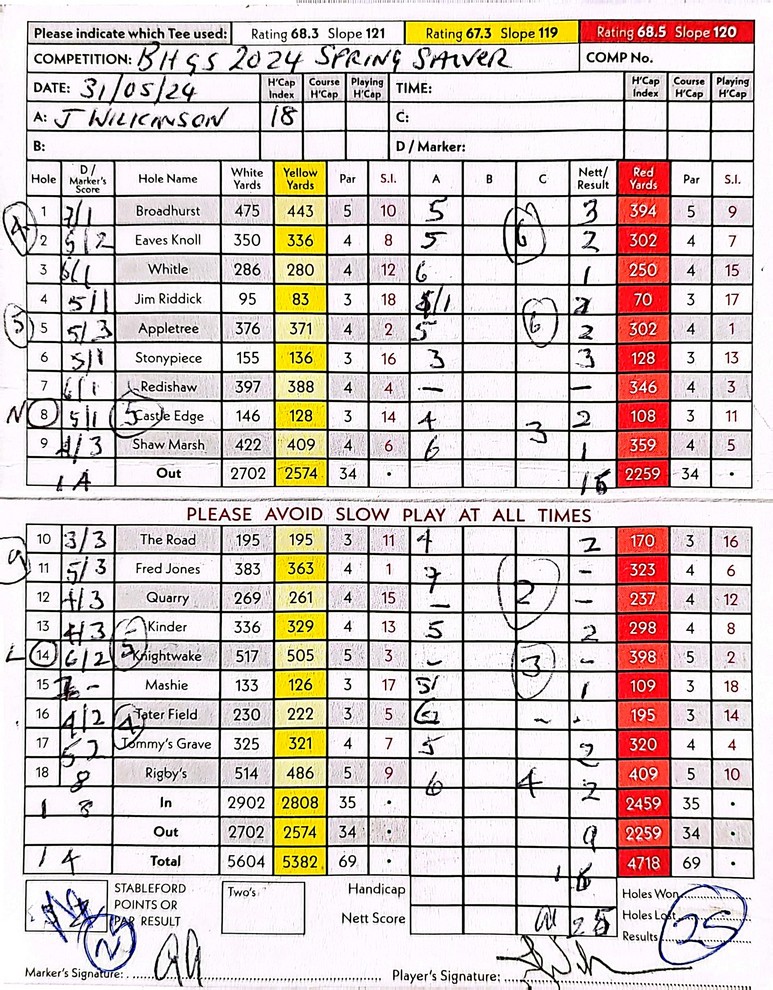 Please indicate which Tee used: Rating 68.3 Slope 121 Rating 67.3 Slope 119 Rating 68.5 Slope 120
COMPETITION: BHGS 2024 SPRING SALVER COMP No.
DATE: 31/05/24 H'Cap Index Course H'Cap Playing H'Cap TIME: H'Cap Index Course H'Cap Playing H'Cap
A: J WILKINSON 18 C:
B: D / Marker:
Hole D / Marker's Score Hole Name White Yards Yellow Yards Par S.I. A B C Nett/ Result Red Yards Par S.I.
1 Broadhurst 475 443 5 10 5 3 394 5 9
4 6
2 5/2 Eaves Knoll 350 336 4 8 5 2 302 4 7
3 6/1 Whitle 286 280 4 12 6 1 250 4 15
4 5/1 Jim Riddick 95 83 3 18 70 3 17
5 6
5 5/3 Appletree 376 371 4 2 5 2 302 4 1
6 5/1 Stonypiece 155 136 3 16 3 3 128 3 13
7 6/1 Redishaw 397 388 4 4 – – 346 4 3
N 8 5/1 5 Castle Edge 146 128 3 14 4 2 108 3 11
9 4/3 Shaw Marsh 422 409 4 6 6 3 1 359 4 5
1 4 Out 2702 2574 34 • 15 2259 34 •
PLEASE AVOID SLOW PLAY AT ALL TIMES
10 3/3 The Road 195 195 3 11 4 2 170 3 16
9
11 5/3 Fred Jones 383 363 4 1 7 – 323 4 6
2
12 4/3 Quarry 269 261 4 15 – – 237 4 12
13 4/3 Kinder 336 329 4 13 5 2 298 4 8
L 14 6/2 Knightwake 517 505 5 3 – 3 – 398 5 2
15 – Mashie 133 126 3 17 5/ 1 109 3 18
16 4/2 4 Tater Field 230 222 3 5 – . 195 3 14
17 5 2 Tommy's Grave 325 321 4 7 5 2 320 4 4
18 8 Rigby's 514 486 5 9 6 4 2 409 5 10
1 3 In 2902 2808 35 • 2459 35 •
Out 2702 2574 34 • 9 2259 34 •
1 4 Total 5604 5382 69 • 16 4718 69 •
STABLEFORD POINTS OR PAR RESULT Two's Handicap Holes Won
Nett Score 25 Holes Lost 25
Results
Marker's Signature: Player's Signature: